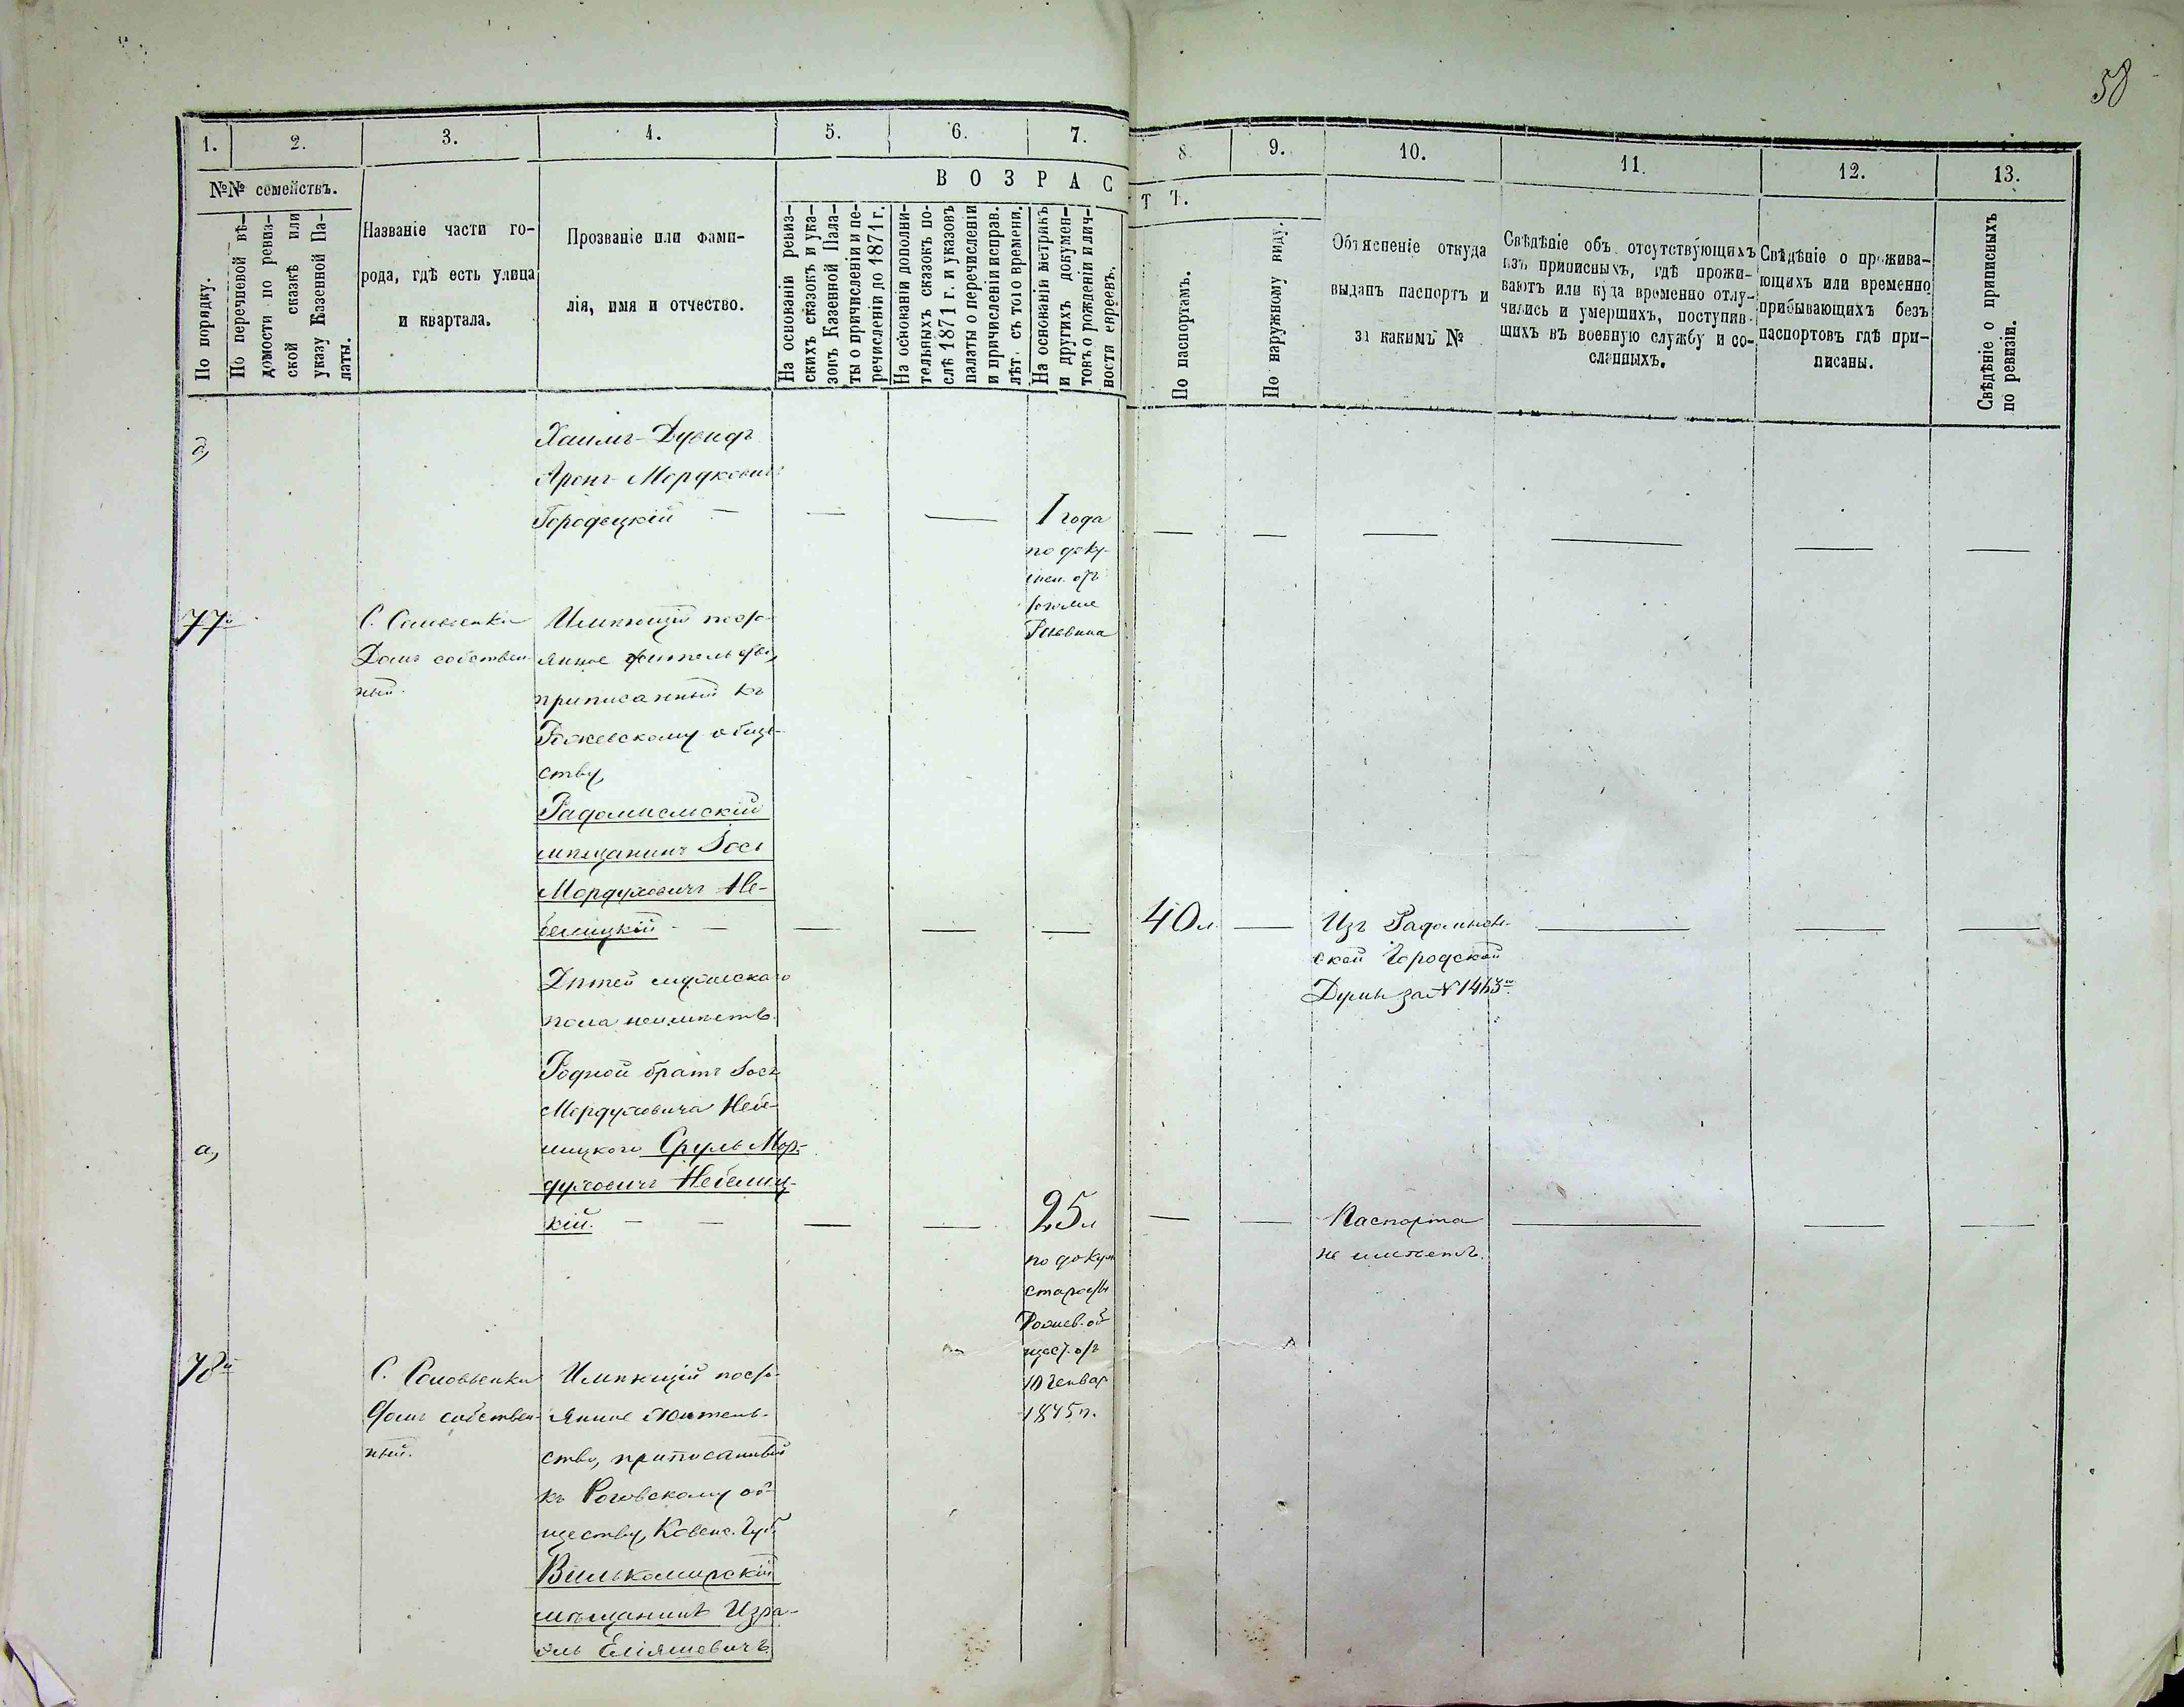 58
1. 2. 3. 4. 5. 6. 7. 8. 9. 10. 11. 12. 13.
№№ семействъ.
В О З Р А С Т Ъ.
По порядку.
По перечневой вѣ-
домости по ревиз-
ской сказкѣ или
указу Казенной Па-
латы.
Названіе части го-
рода, гдѣ есть улица
и квартала.
Прозваніе или фами-
лія, имя и отчество.
На основаніи ревиз-
скихъ сказокъ и ука-
зовъ Казенной Пала-
ты о причисленіи и пе-
речисленіи до 1871 г.
На основаніи дополни-
тельныхъ сказокъ по-
слѣ 1871 г. и указовъ
палаты о перечисленіи
и причисленіи исправ.
лѣт. съ того времени.
На основаніи метрикъ
и другихъ докумен-
товъ о рожденіи и лич-
ности евреевъ.
По паспортамъ.
По наружному виду.
Объясненіе откуда
выданъ паспортъ и
за какимъ №
Свѣдѣніе объ отсутствующихъ
изъ приписныхъ, гдѣ прожи-
ваютъ или куда временно отлу-
чились и умершихъ, поступив-
шихъ въ военную службу и со-
сланныхъ.
Свѣдѣніе о прожива-
ющихъ или временно
прибывающихъ безъ
паспортовъ гдѣ при-
писаны.
Свѣдѣніе о приписныхъ
по ревизіи.
Хаимъ-Дувидъ
Аронъ-Мордковичъ
Городецкій — — — 1 года — — — — — —
по доку-
мен. отъ
Раввина
77й
С. Соловьевка
Домъ собствен-
ный.
Имѣющій посто-
янное жительство,
приписанный къ
Рожевскому обще-
ству,
Радомысльскій
мѣщанинъ Іось
Мордуховичъ Не-
белицкій — — — — 40 л. — Изъ Радомысль-
ской Городской
Думы за №
Дѣтей мужескаго
пола неимѣетъ.
а,
Родной братъ Іося
Мордуховича Небе-
лицкого Сруль Мор-
духовичъ Небелиц-
кій. — — — — 25 л — — Паспорта
не имѣетъ.
по докум
старосты
Рожев. об
щест. отъ
10 Генвар
78й
С. Соловьевка
Домъ собствен-
ный.
Имѣющій посто-
янное житель-
ство, приписанный
къ Роговскому об-
ществу, Ковенс. Губ.
Вилькомирскій
мѣщанинъ Изра-
эль Еліяшевичъ